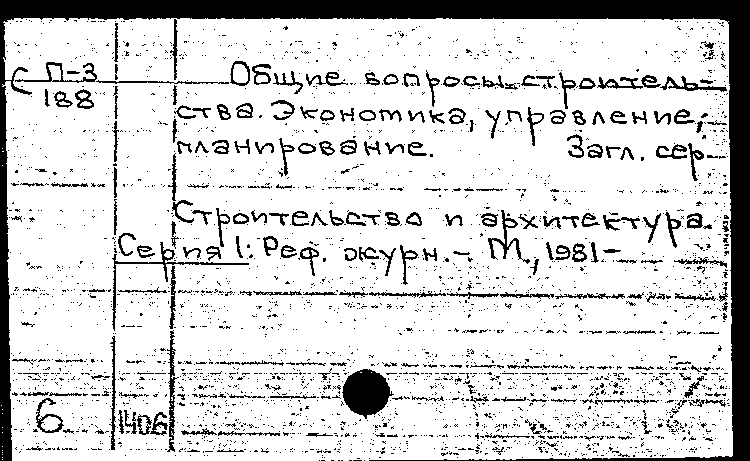 С П-3
188
Общие вопросы строитель-
ства. Экономика, управление,
планирование. Загл. сер.
Строительство и архитектура.
Серия 1: Реф. журн. - М., 1981-
6 1406